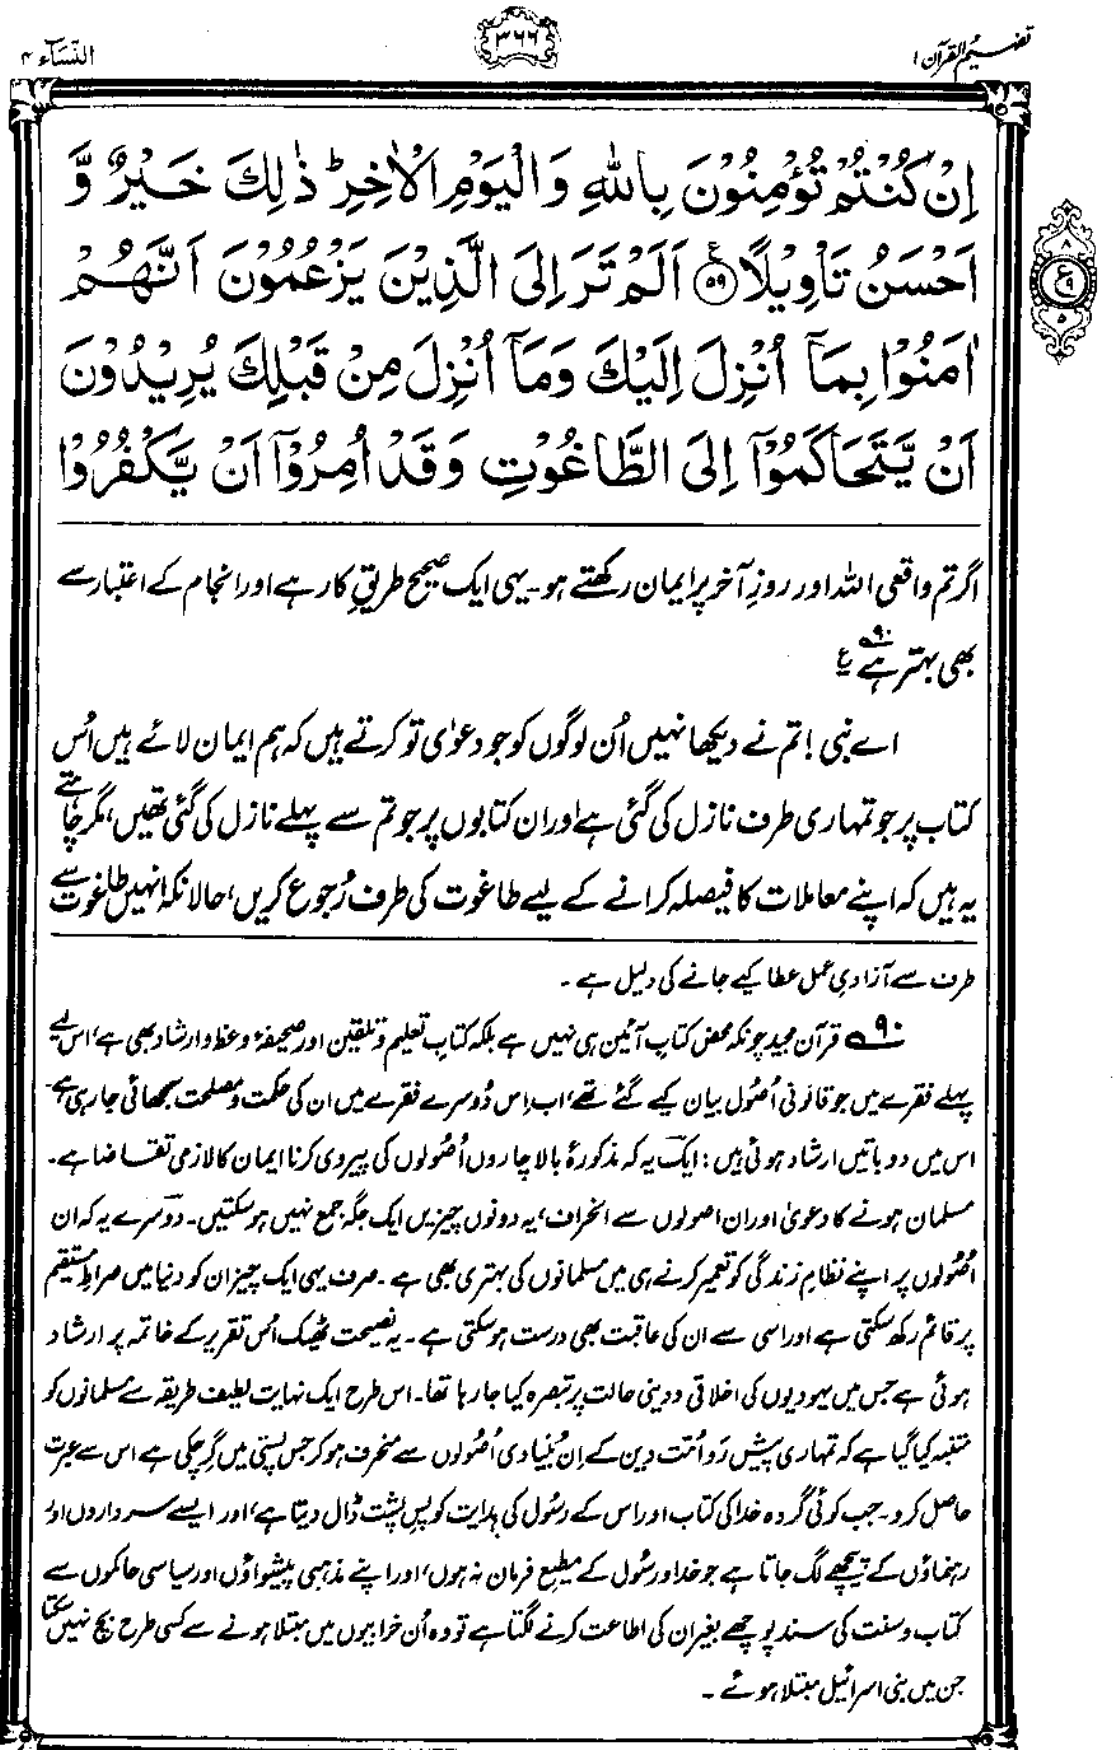 تفہیم القرآن ۱
۳۶۶
النسآء ۴
اِنْ كُنْتُمْ تُؤْمِنُوْنَ بِاللّٰهِ وَالْيَوْمِ الْاٰخِرِ ؕ ذٰلِكَ خَيْرٌ وَّ
اَحْسَنُ تَاْوِيْلًا ﴿۵۹﴾ ع اَلَمْ تَرَ اِلَى الَّذِيْنَ يَزْعُمُوْنَ اَنَّهُمْ
اٰمَنُوْا بِمَاۤ اُنْزِلَ اِلَيْكَ وَمَاۤ اُنْزِلَ مِنْ قَبْلِكَ يُرِيْدُوْنَ
اَنْ يَّتَحَاكَمُوْۤا اِلَى الطَّاغُوْتِ وَقَدْ اُمِرُوْۤا اَنْ يَّكْفُرُوْا
۸
ع
۹
۵
اگر تم واقعی اللہ اور روزِ آخر پر ایمان رکھتے ہو۔ یہی ایک صحیح طریقِ کار ہے اور انجام کے اعتبار سے
بھی بہتر ہے ۹۰ ع
اے نبی! تم نے دیکھا نہیں اُن لوگوں کو جو دعوٰی تو کرتے ہیں کہ ہم ایمان لائے ہیں اُس
کتاب پر جو تمہاری طرف نازل کی گئی ہے اور ان کتابوں پر جو تم سے پہلے نازل کی گئی تھیں، مگر چاہتے
یہ ہیں کہ اپنے معاملات کا فیصلہ کرانے کے لیے طاغوت کی طرف رُجوع کریں، حالانکہ انہیں طاغوت سے
طرف سے آزادیِ عمل عطا کیے جانے کی دلیل ہے۔
۹۰ قرآن مجید چونکہ محض کتابِ آئین ہی نہیں ہے بلکہ کتابِ تعلیم و تلقین اور صحیفۂ وعظ و ارشاد بھی ہے، اس لیے
پہلے فقرے میں جو قانونی اُصُول بیان کیے گئے تھے، اب اِس دُوسرے فقرے میں ان کی حکمت و مصلحت سمجھائی جا رہی ہے۔
اس میں دو باتیں ارشاد ہوئی ہیں: ایک یہ کہ مذکورۂ بالا چاروں اُصُولوں کی پیروی کرنا ایمان کا لازمی تقاضا ہے۔
مسلمان ہونے کا دعویٰ اور ان اصولوں سے انحراف، یہ دونوں چیزیں ایک جگہ جمع نہیں ہو سکتیں۔ دوسرے یہ کہ ان
اُصُولوں پر اپنے نظامِ زندگی کو تعمیر کرنے ہی میں مسلمانوں کی بہتری بھی ہے۔ صرف یہی ایک چیز ان کو دنیا میں صراطِ مستقیم
پر قائم رکھ سکتی ہے اور اسی سے ان کی عاقبت بھی درست ہو سکتی ہے۔ یہ نصیحت ٹھیک اُس تقریر کے خاتمہ پر ارشاد
ہوئی ہے جس میں یہودیوں کی اخلاقی و دینی حالت پر تبصرہ کیا جا رہا تھا۔ اس طرح ایک نہایت لطیف طریقہ سے مسلمانوں کو
متنبہ کیا گیا ہے کہ تمہاری پیش رَو اُمّت دین کے اِن بُنیادی اُصُولوں سے منحرف ہو کر جس پستی میں گِر چکی ہے اس سے عبرت
حاصل کرو۔ جب کوئی گروہ خدا کی کتاب اور اس کے رسُول کی ہدایت کو پسِ پُشت ڈال دیتا ہے، اور ایسے سرداروں اور
رہنماؤں کے پیچھے لگ جاتا ہے جو خدا و رسُول کے مطیعِ فرمان نہ ہوں، اور اپنے مذہبی پیشواؤں اور سیاسی حاکموں سے
کتاب و سنت کی سند پوچھے بغیر ان کی اطاعت کرنے لگتا ہے تو وہ اُن خرابیوں میں مبتلا ہونے سے کسی طرح بچ نہیں سکتا
جن میں بنی اسرائیل مبتلا ہوئے۔